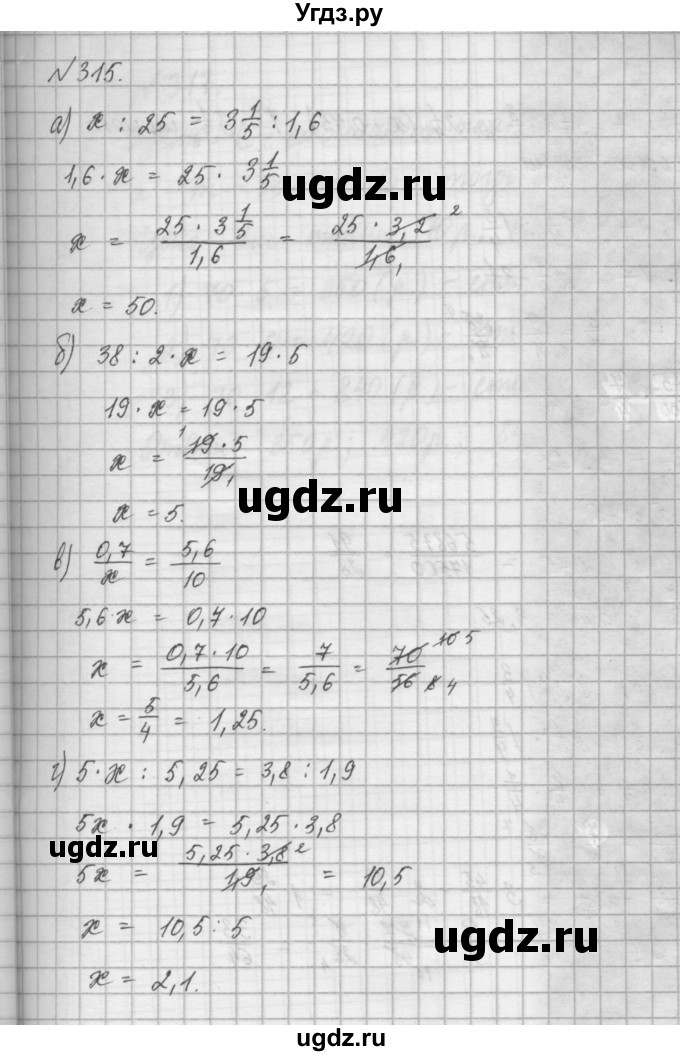 Угдз.ру
№315.
а) x : 25 = 3 1/5 : 1,6
1,6 · x = 25 · 3 1/5
ugdz.ru
x = (25 · 3 1/5)/1,6 = (25 · 3,2 2)/(1,6 1)
x = 50.
б) 38 : 2 · x = 19 · 5
19 · x = 19 · 5
x = (1 19 · 5)/(19 1)
ugdz.ru
x = 5.
в) 0,7/x = 5,6/10
5,6 · x = 0,7 · 10
x = (0,7 · 10)/5,6 = 7/5,6 = (70 10 5)/(56 8 4)
x = 5/4 = 1,25.
г) 5 · x : 5,25 = 3,8 : 1,9
5x · 1,9 = 5,25 · 3,8
ugdz.ru
5x = (5,25 · 3,8 2)/(1,9 1) = 10,5
x = 10,5 : 5
ugdz.ru
x = 2,1.
Угдз.ру